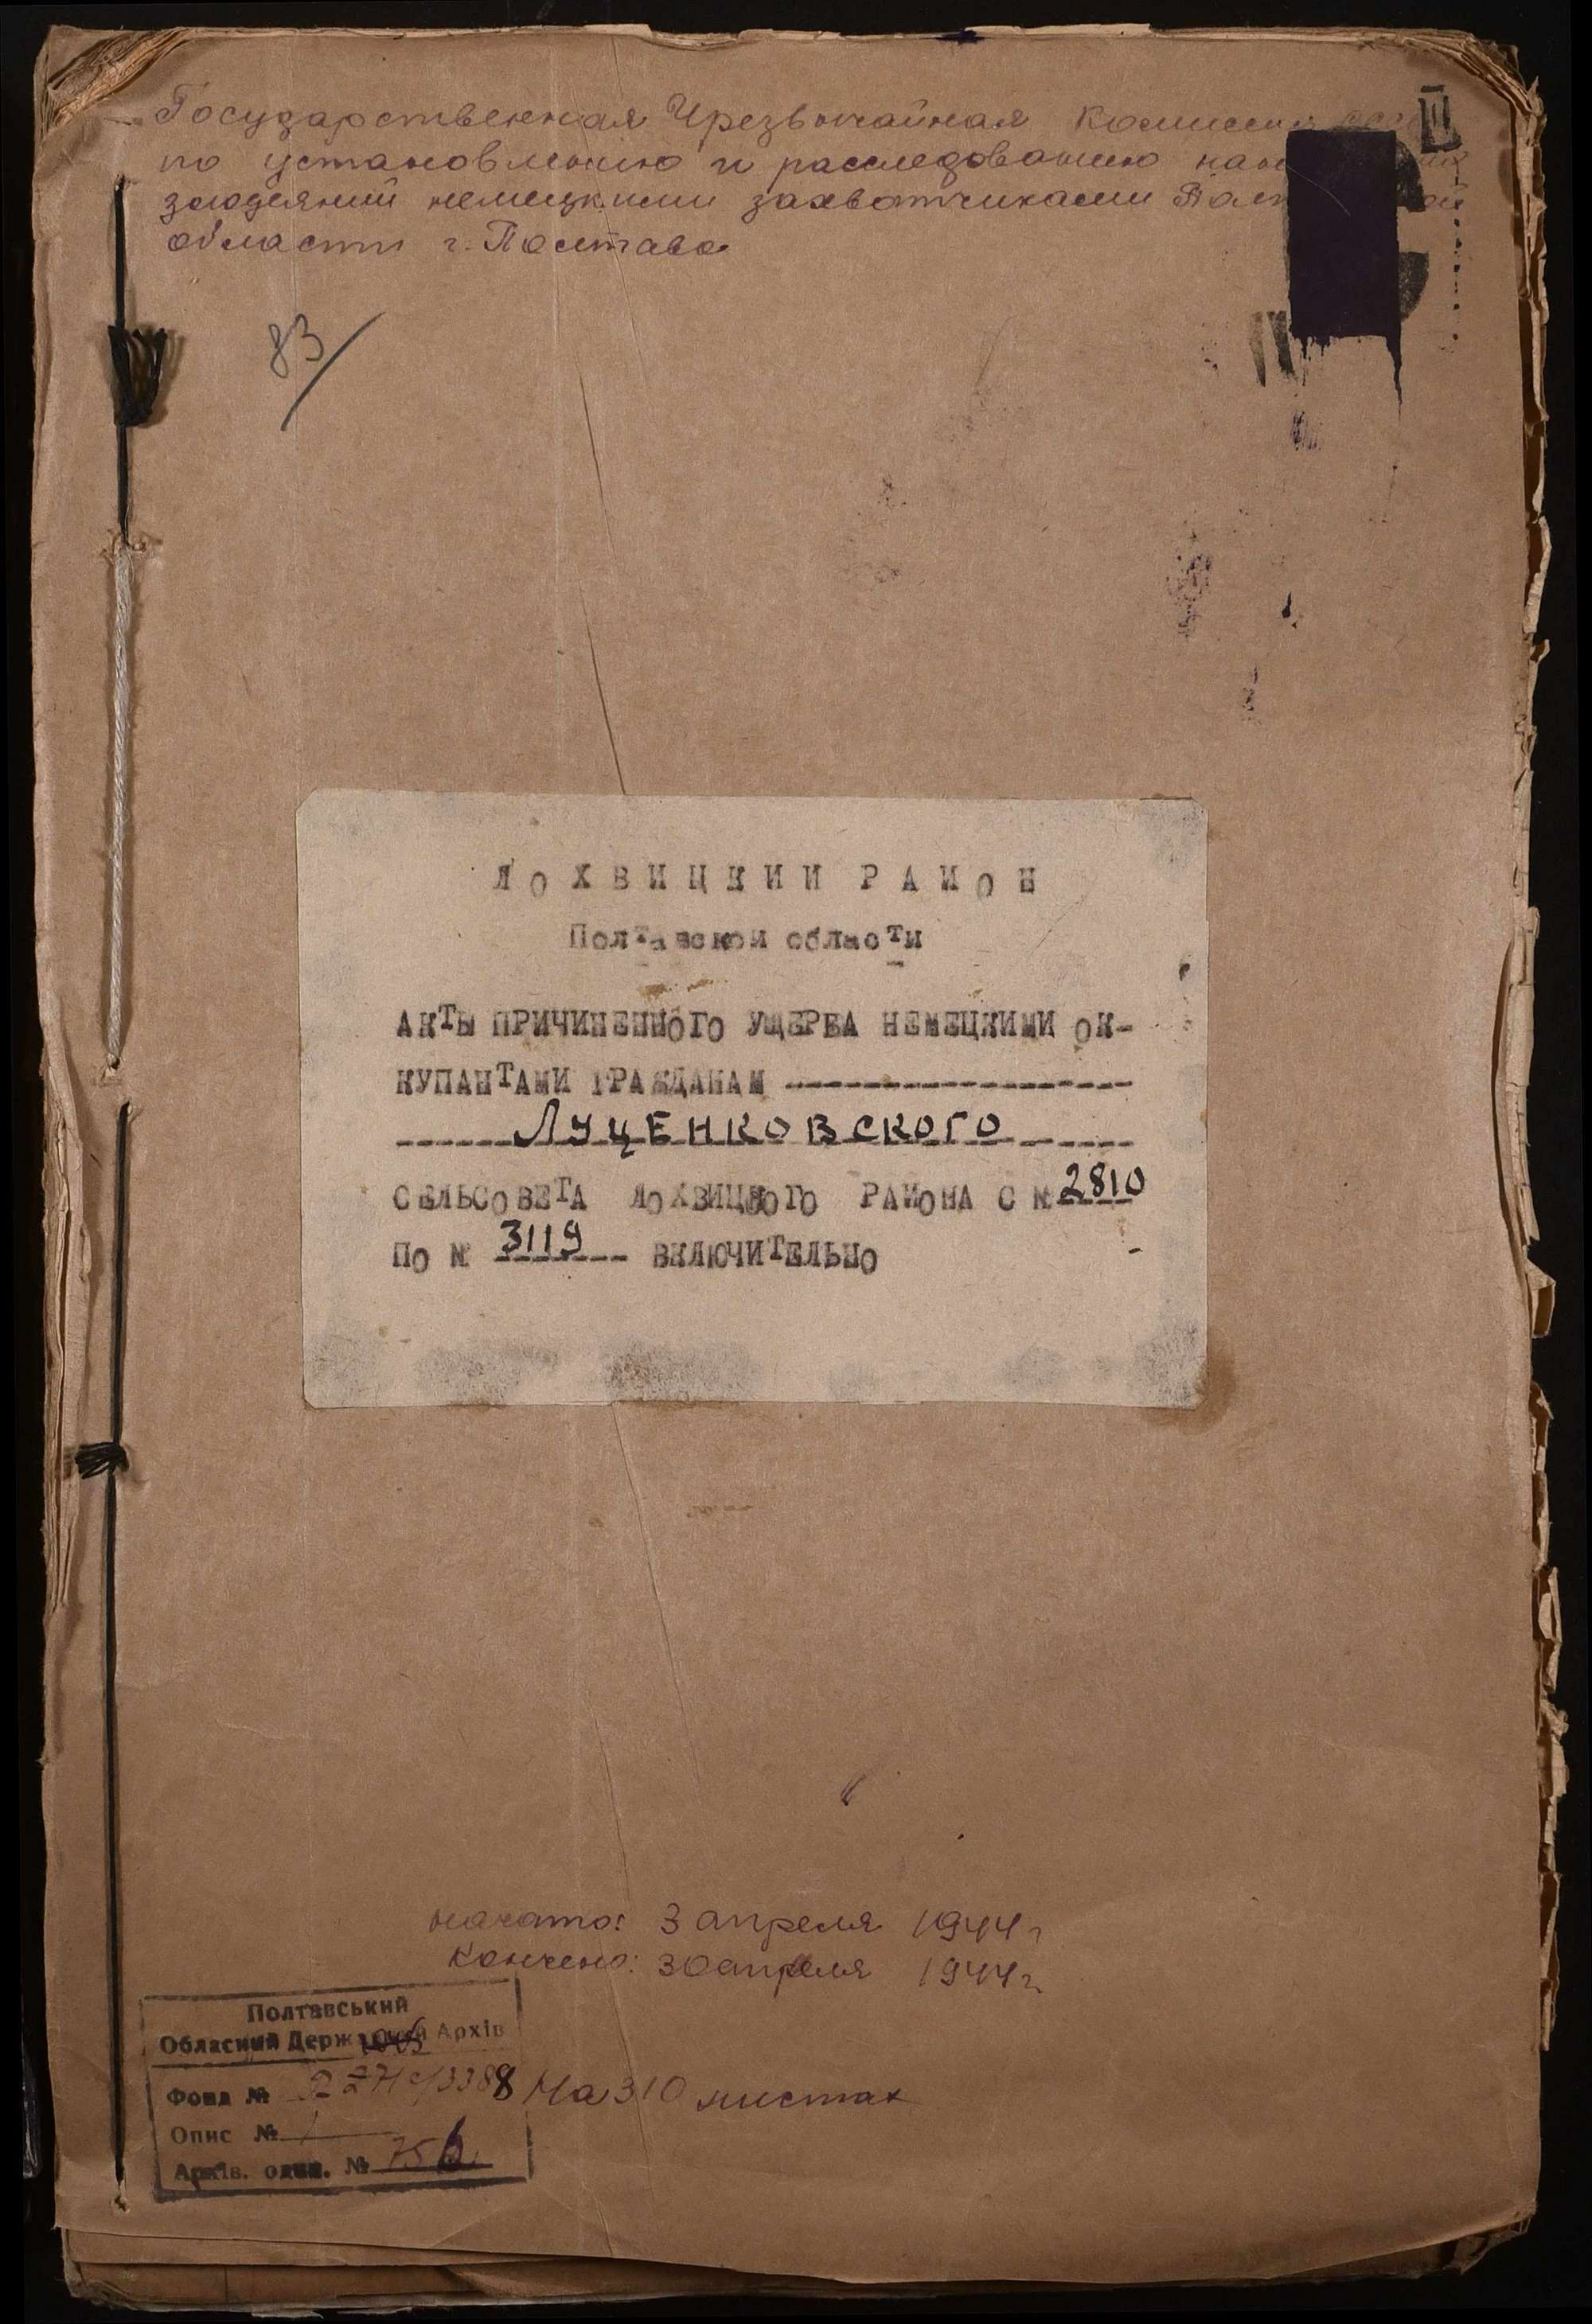 Государственная Чрезвычайная Комиссия
по установлению и расследованию
злодеяний немецкими захватчиками
области г. Полтава
III
83/
ЛОХВИЦКИЙ РАЙОН
Полтавской области
АКТЫ ПРИЧИНЕННОГО УЩЕРБА НЕМЕЦКИМИ ОК-
КУПАНТАМИ ГРАЖДАНАМ
ЛУЦЕНКОВСКОГО
СЕЛЬСОВЕТА ЛОХВИЦКОГО РАЙОНА С № 2810
ПО № 3119 ВКЛЮЧИТЕЛЬНО
начато: 3 апреля 1944 г
Кончено: 30 апреля 1944 г.
Полтавський
Обласний Державний Архів
Фонд №
На 310 листах
Опис № 1
Архів. один. № 756